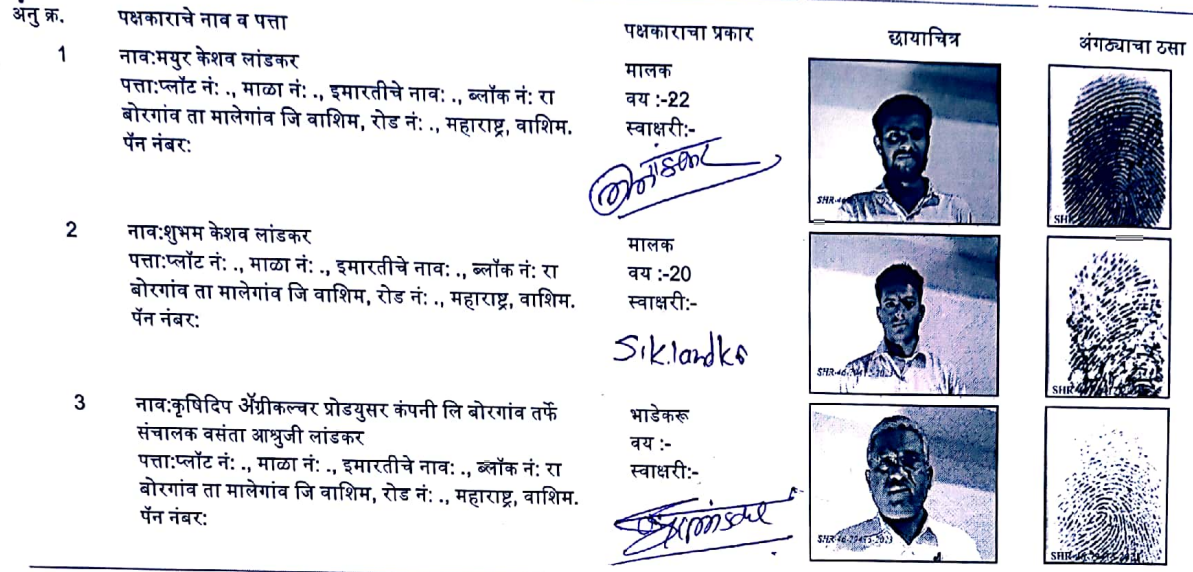 अनु क्र. पक्षकाराचे नाव व पत्ता पक्षकाराचा प्रकार छायाचित्र अंगठ्याचा ठसा
1 नाव:मयुर केशव लांडकर
पत्ता:प्लॉट नं: ., माळा नं: ., इमारतीचे नाव: ., ब्लॉक नं: रा
बोरगांव ता मालेगांव जि वाशिम, रोड नं: ., महाराष्ट्र, वाशिम.
पॅन नंबर:
मालक
वय :-22
स्वाक्षरी:-
2 नाव:शुभम केशव लांडकर
पत्ता:प्लॉट नं: ., माळा नं: ., इमारतीचे नाव: ., ब्लॉक नं: रा
बोरगांव ता मालेगांव जि वाशिम, रोड नं: ., महाराष्ट्र, वाशिम.
पॅन नंबर:
मालक
वय :-20
स्वाक्षरी:-
3 नाव:कृषिदिप ॲग्रीकल्चर प्रोडयुसर कंपनी लि बोरगांव तर्फे
संचालक वसंता आश्रुजी लांडकर
पत्ता:प्लॉट नं: ., माळा नं: ., इमारतीचे नाव: ., ब्लॉक नं: रा
बोरगांव ता मालेगांव जि वाशिम, रोड नं: ., महाराष्ट्र, वाशिम.
पॅन नंबर:
भाडेकरू
वय :-
स्वाक्षरी:-